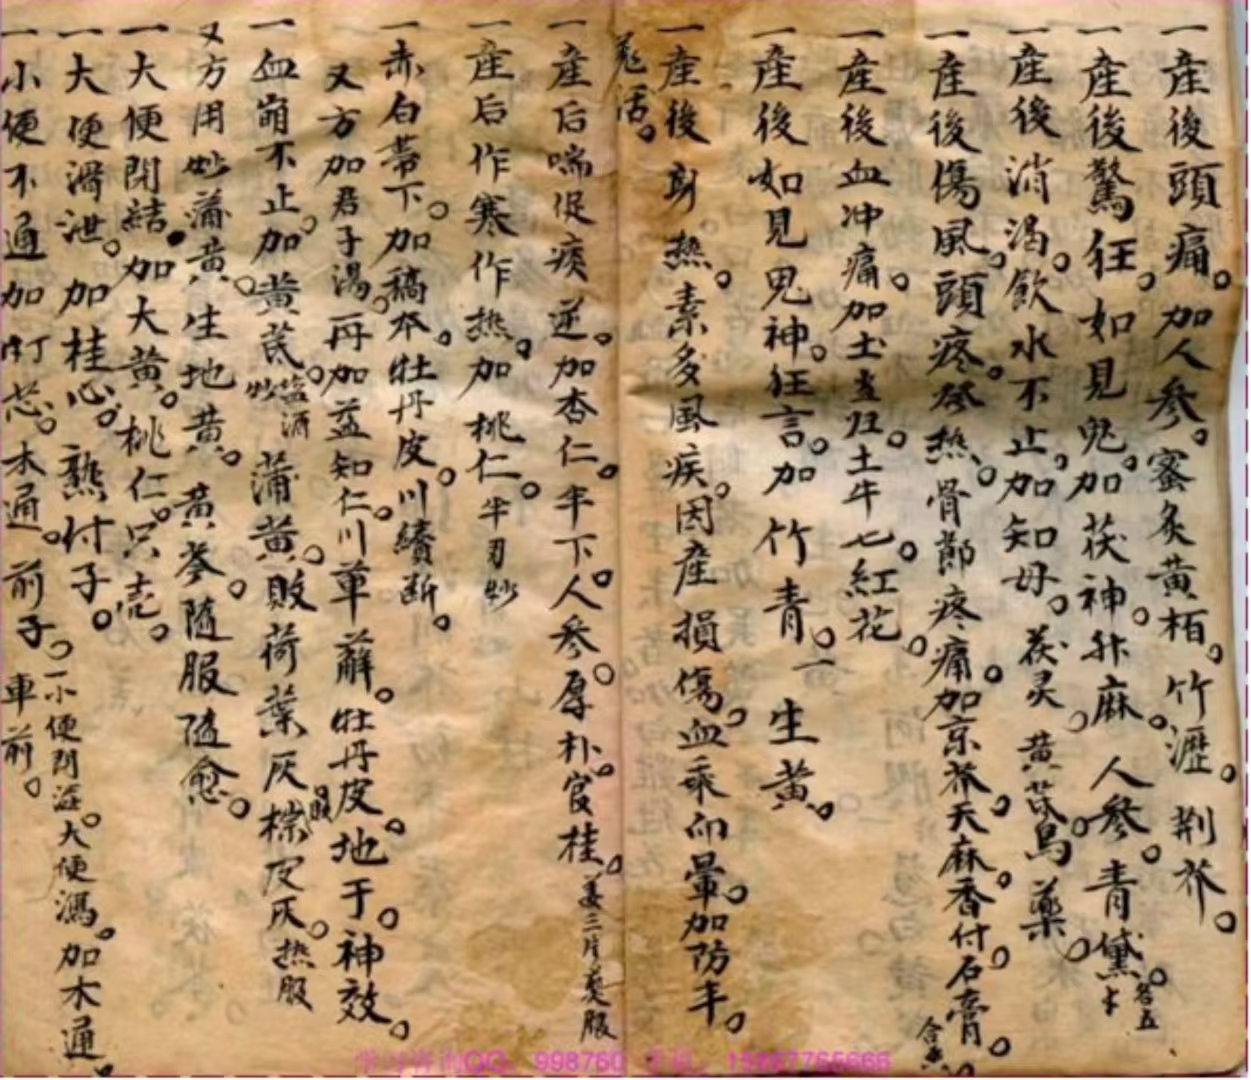 一產後頭痛。加人參。蜜炙黃栢。竹瀝。荆芥。
一產後驚狂。如見鬼。加茯神。升麻。人參。青黛。各五
一產後消渴。飲水不止。加知母。茯灵。黄芪。烏藥。
一產後傷風。頭疼。發熱。骨節疼痛。加京芥。天麻。香付。石膏。
一產後血冲痛。加土歸。土牛七。紅花。
一產後如見鬼神。狂言。加竹青。生黃。
一產後身熱。素多風疾。因產損傷。血乘而暈。加防丰。
羌活。
一產后喘促痰逆。加杏仁。半下。人參。厚朴。官桂。姜三片煎服
一產后作寒作热。加桃仁。半
一赤白帶下。加稿本。牡丹皮。川續断。
又方加君子湯。再加益知仁。川萆薢。牡丹皮。地于。神效。
一血崩不止。加黄芪。塩酒炒蒲黃。敗荷葉灰。棕皮灰。热服
又方用炒蒲黃。生地黃。黃芩。隨服隨愈。
一大便閉結。加大黃。桃仁。只壳。
一大便滑泄。加桂心。熟付子。
一小便閉澁。大便瀉。加木通。
一小便不通加灯芯。木通。前子。車前。